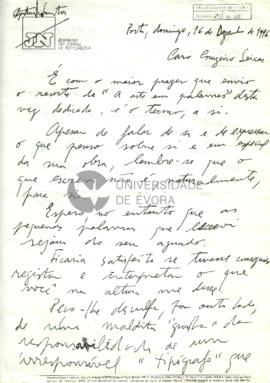 Porto, domingo, 16 de Dezembro de 1996
Caro Cruzeiro Seixas
É com o maior prazer que envio
o recorte de "A arte em palavras" desta
vez dedicada, e o termo, a si.
Apesar de falar de si e de expressar
o que penso sobre si e em especial
da sua obra, lembre-se que o
que escrevi não é, naturalmente,
para
UNIVERSIDADE
DE ÉVORA
Espero no entanto que as
pequenas palavras que escrevi
sejam do seu agrado.
Ficaria satisfeito se tivesse conseguido
registar e interpretar o que
você na altura me disse!
Peço-lhe desculpa, por outro lado,
de uma maldita "gralha" da
responsabilidade de um
irresponsável "tipógrafo" que